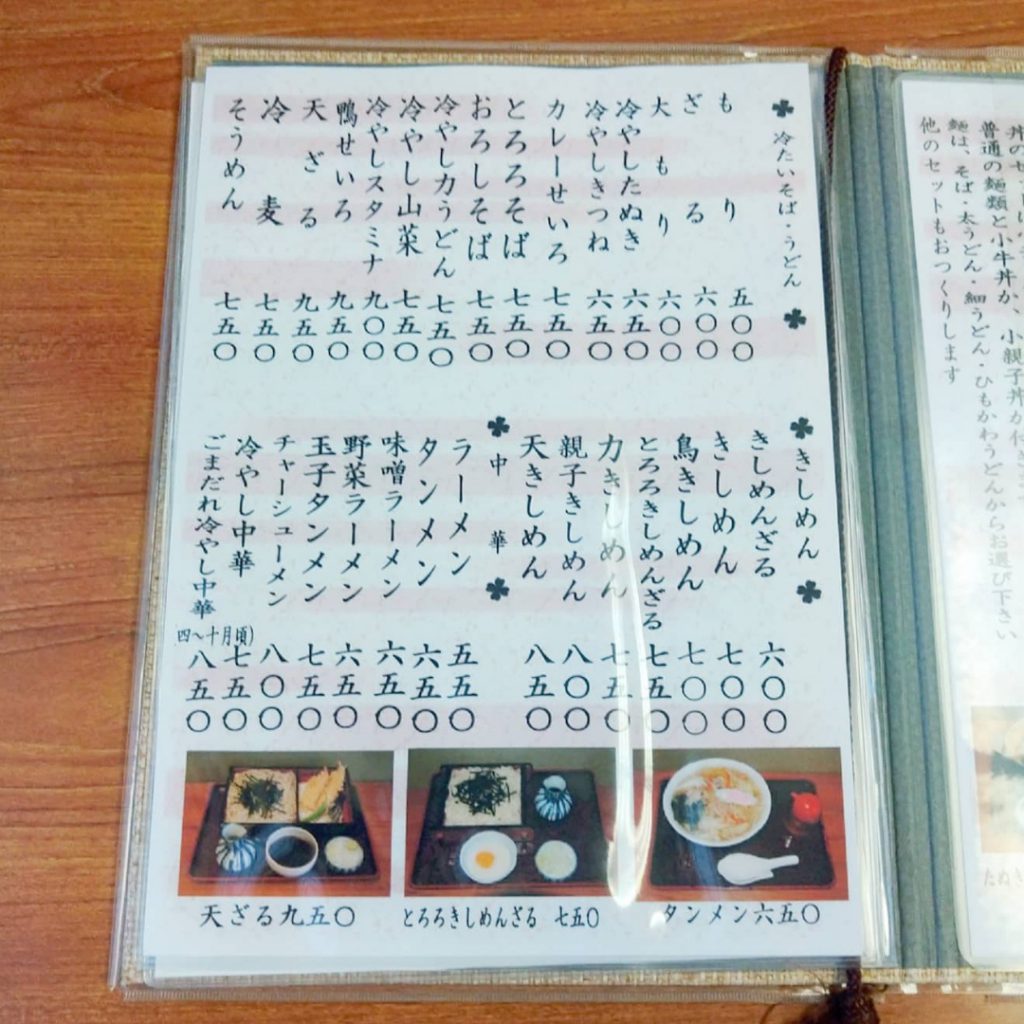 普通の麺類と小牛丼か、小親子丼が付きます
麺は、そば・太うどん・細うどん・ひもかわうどんからお選び下さい
他のセットもおつくりします
冷たいそば・うどん
もり 五〇〇
ざる 六〇〇
大もり 六〇〇
冷やしたぬき 六五〇
冷やしきつね 六五〇
カレーせいろ 七五〇
とろろそば 七五〇
おろしそば 七五〇
冷やし力うどん 七五〇
冷やし山菜 七五〇
冷やしスタミナ 九〇〇
鴨せいろ 九五〇
天ざる 九五〇
冷麦 七五〇
そうめん 七五〇
きしめん
きしめんざる 六〇〇
きしめん 七〇〇
鳥きしめん 七〇〇
とろろきしめんざる 七五〇
力きしめん 七五〇
親子きしめん 八〇〇
天きしめん 八五〇
中華
ラーメン 五五〇
タンメン 六五〇
味噌ラーメン 六五〇
野菜ラーメン 六五〇
玉子タンメン 七五〇
チャーシューメン 八〇〇
冷やし中華 七五〇
ごまだれ冷やし中華 八五〇
(四〜十月頃)
天ざる九五〇
とろろきしめんざる 七五〇
タンメン六五〇